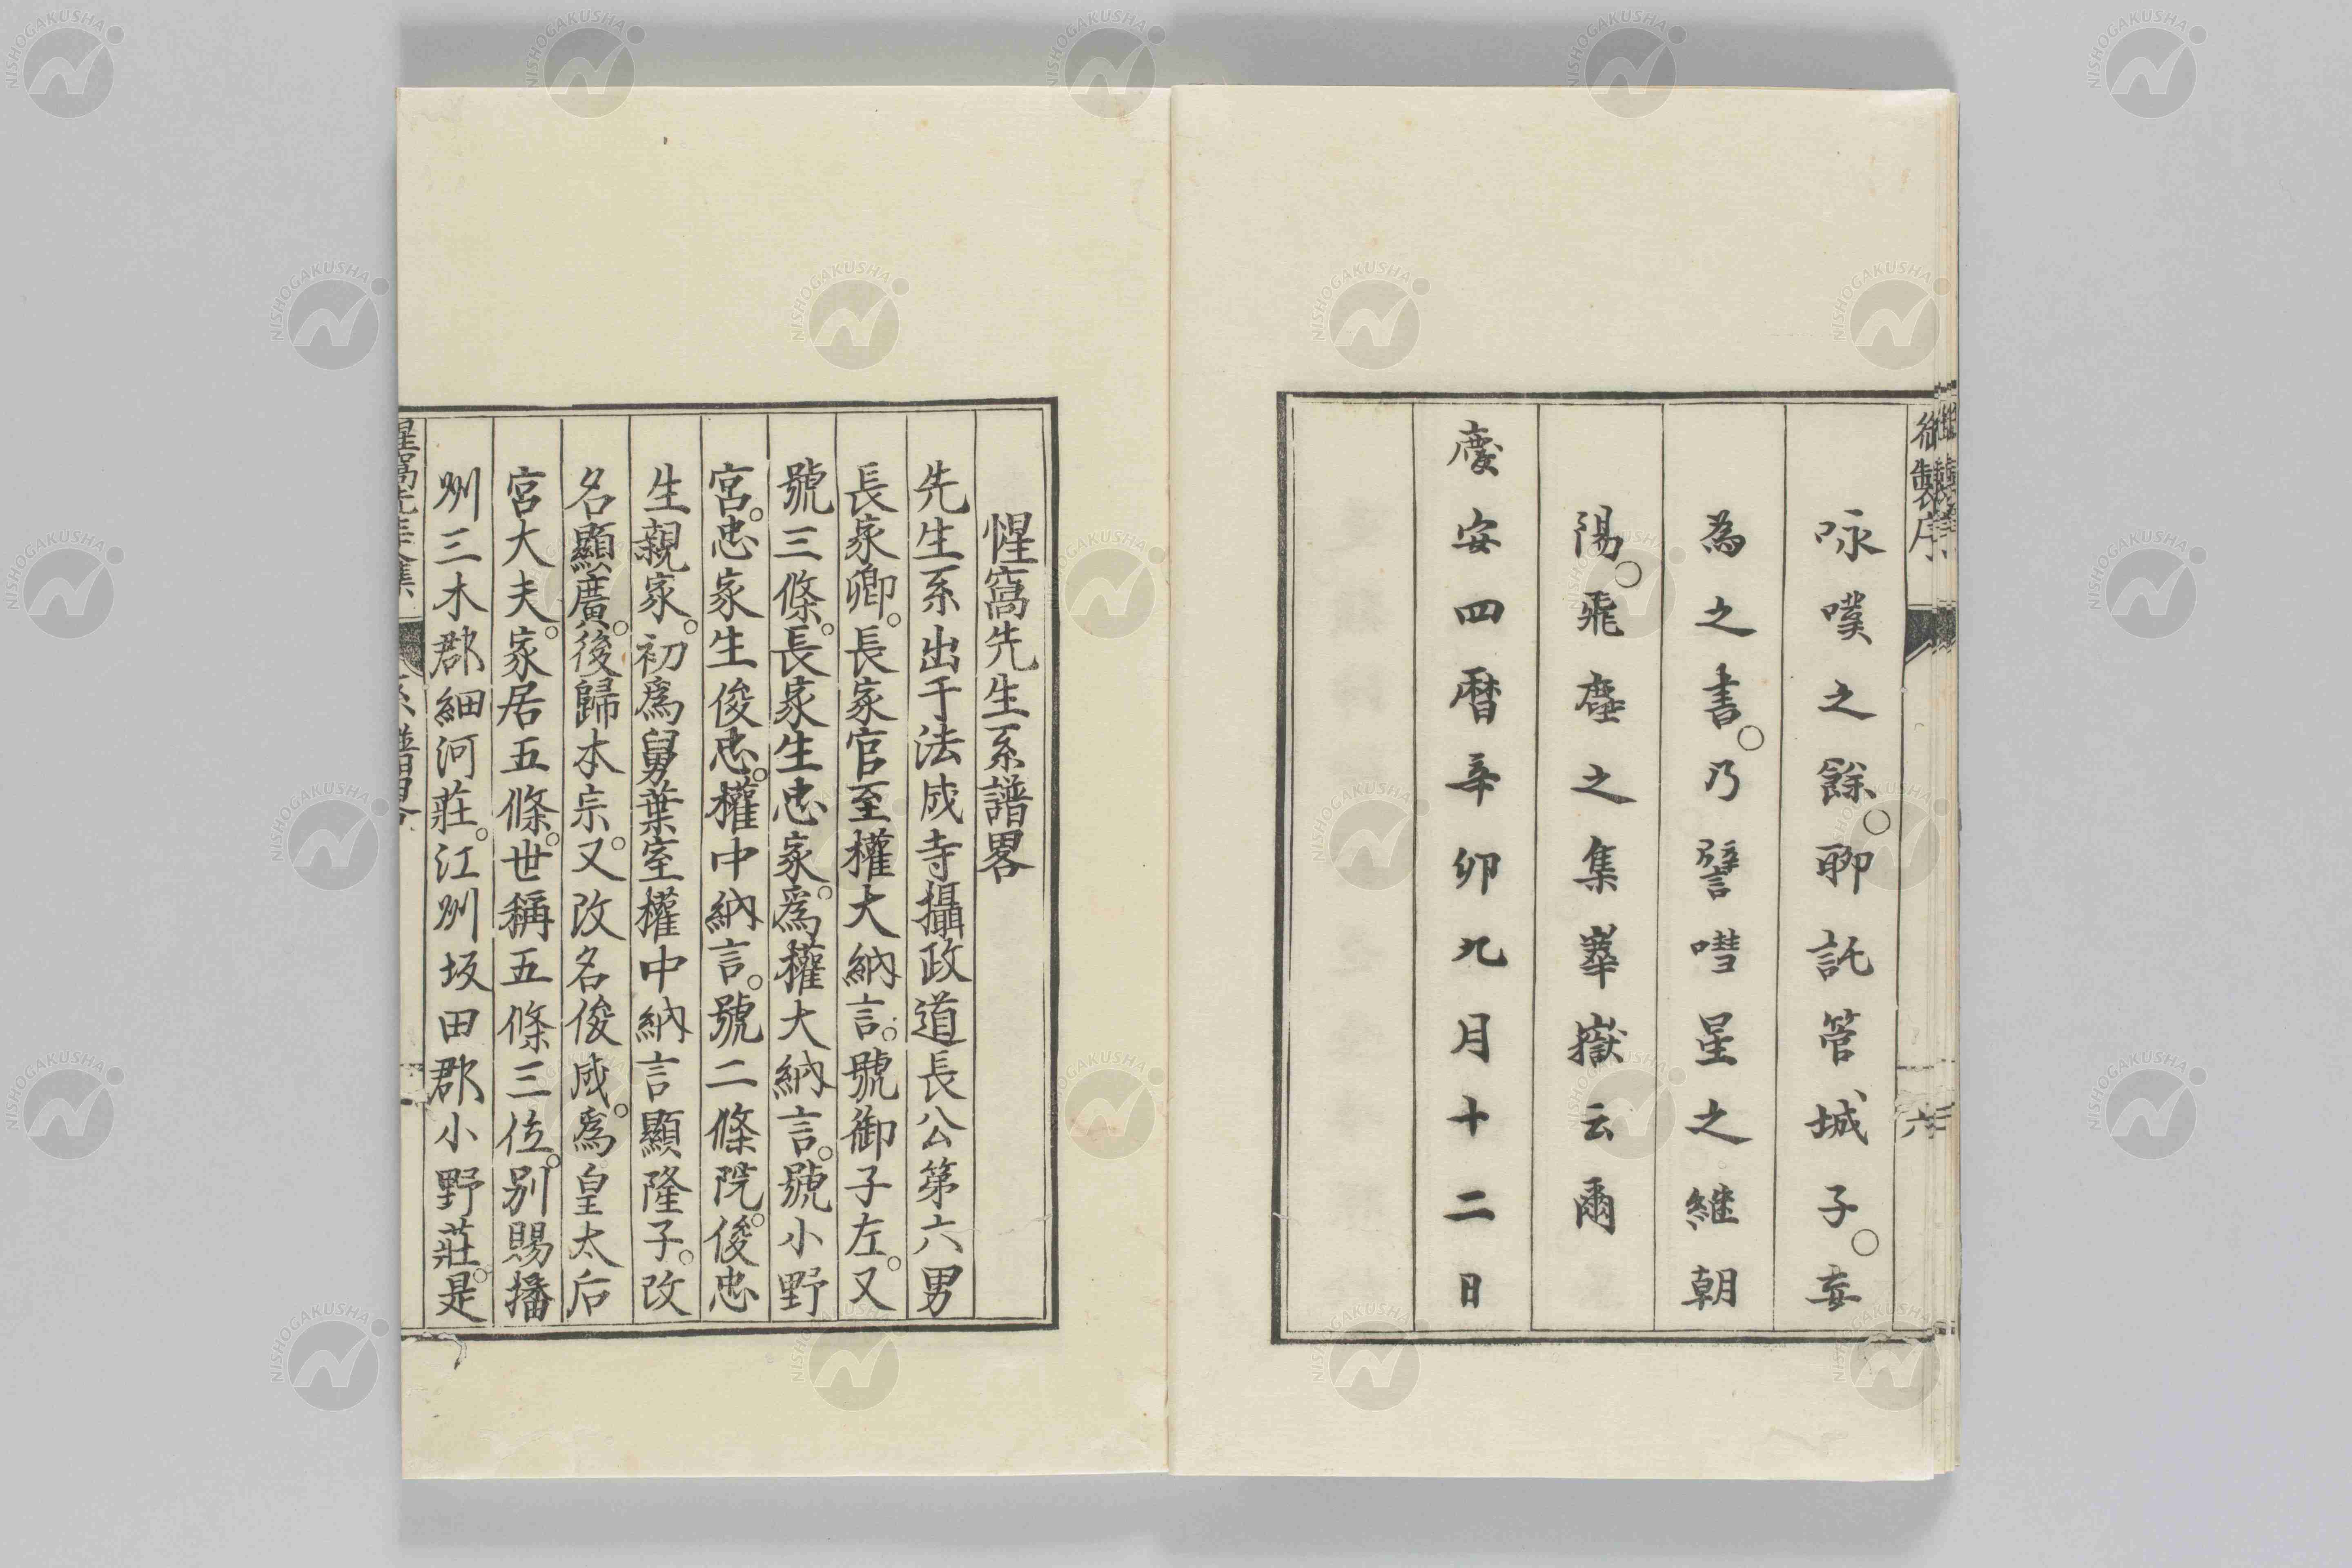 御製序
咏嘆之餘。聊託管城子。妄
為之書。乃譬嘒星之継朝
陽。飛塵之集華嶽云爾
慶安四暦辛卯九月十二日
惺窩先生系譜畧
先生系出于法成寺攝政道長公第六男
長家卿。長家官至權大納言。號御子左。又
號三條。長家生忠家。爲權大納言。號小野
宮。忠家生俊忠。權中納言。號二條院。俊忠
生親家。初爲舅葉室權中納言顯隆子。改
名顯廣。後歸本宗。又改名俊成。爲皇太后
宮大夫。家居五條。世稱五條三位。別賜播
州三木郡細河莊。江州坂田郡小野莊。是
NISHOGAKUSHA